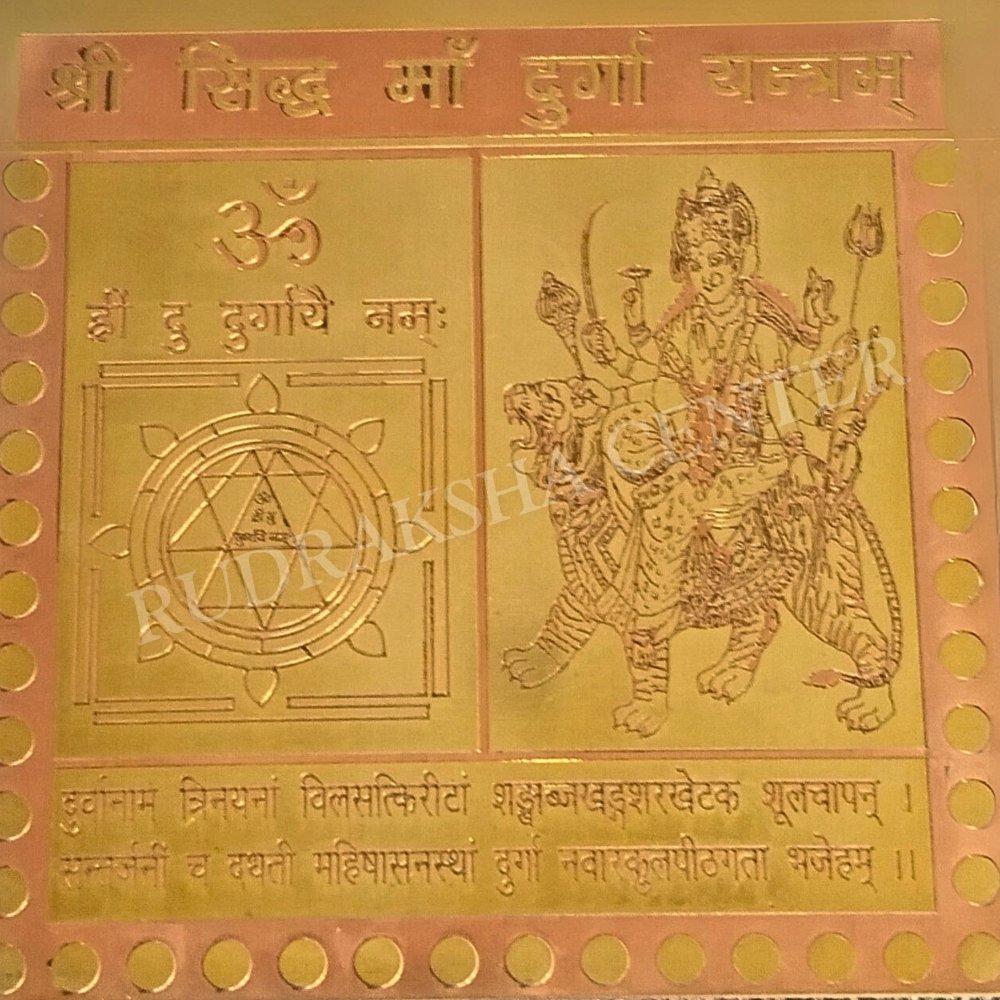 श्री सिद्ध माँ दुर्गा यन्त्रम्
ॐ
ह्रीं दु दुर्गायै नम्ः
ॐ
ह्रीं दु
दुर्गायै नमः
RUDRAKSHA CENTER
दुर्वानाम त्रिनयनां विलसत्किरीटां शङ्खाब्जखड्गशरखेटक शूलचापन् ।
सन्तर्जनीं च दधती महिषासनस्थां दुर्गा नवारकूलपीठगता भजेहम् ।।